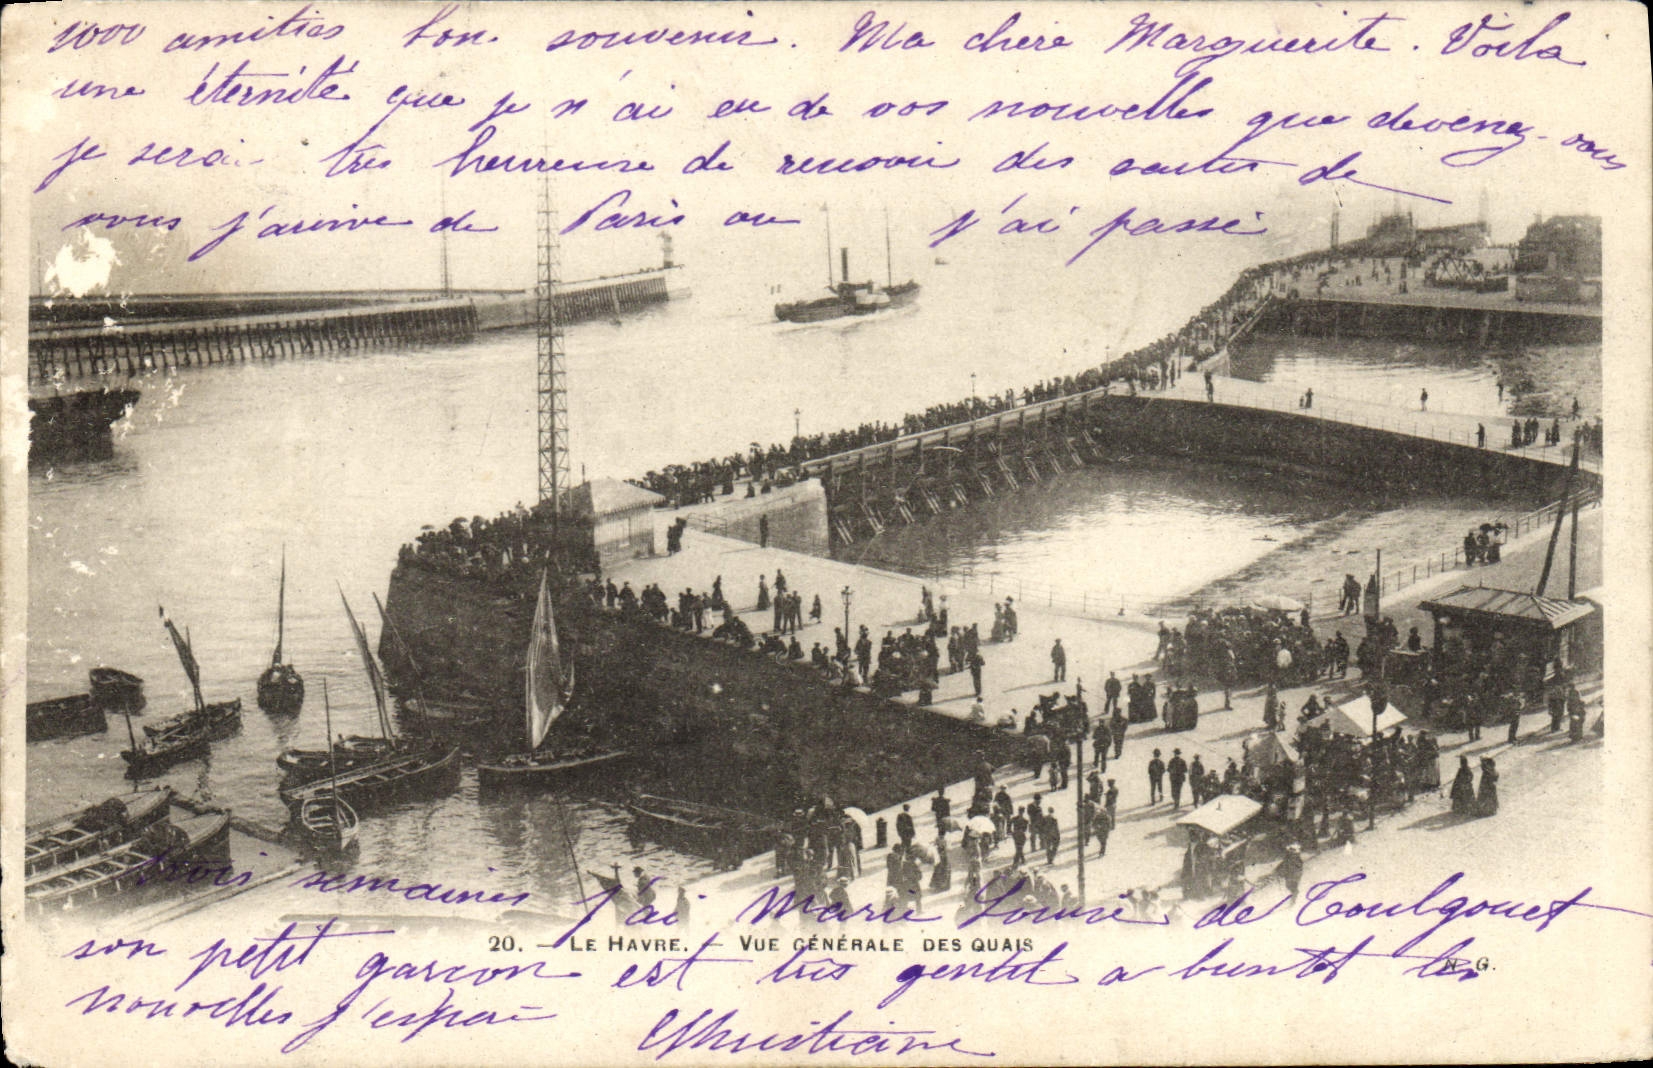 1000 amitiés bon souvenir. Ma chère Marguerite. Voila
une éternité que je n'ai eu de vos nouvelles que devenez-vous
je serais très heureuse de recevoir des cartes de
vous j'arrive de Paris ou j'ai passé
trois semaines j'ai Marie Louise de Toulgouet
20. — LE HAVRE. — VUE GÉNÉRALE DES QUAIS
son petit garcon est très gentil a bientot les
N. G.
nouvelles j'espère
Christiane